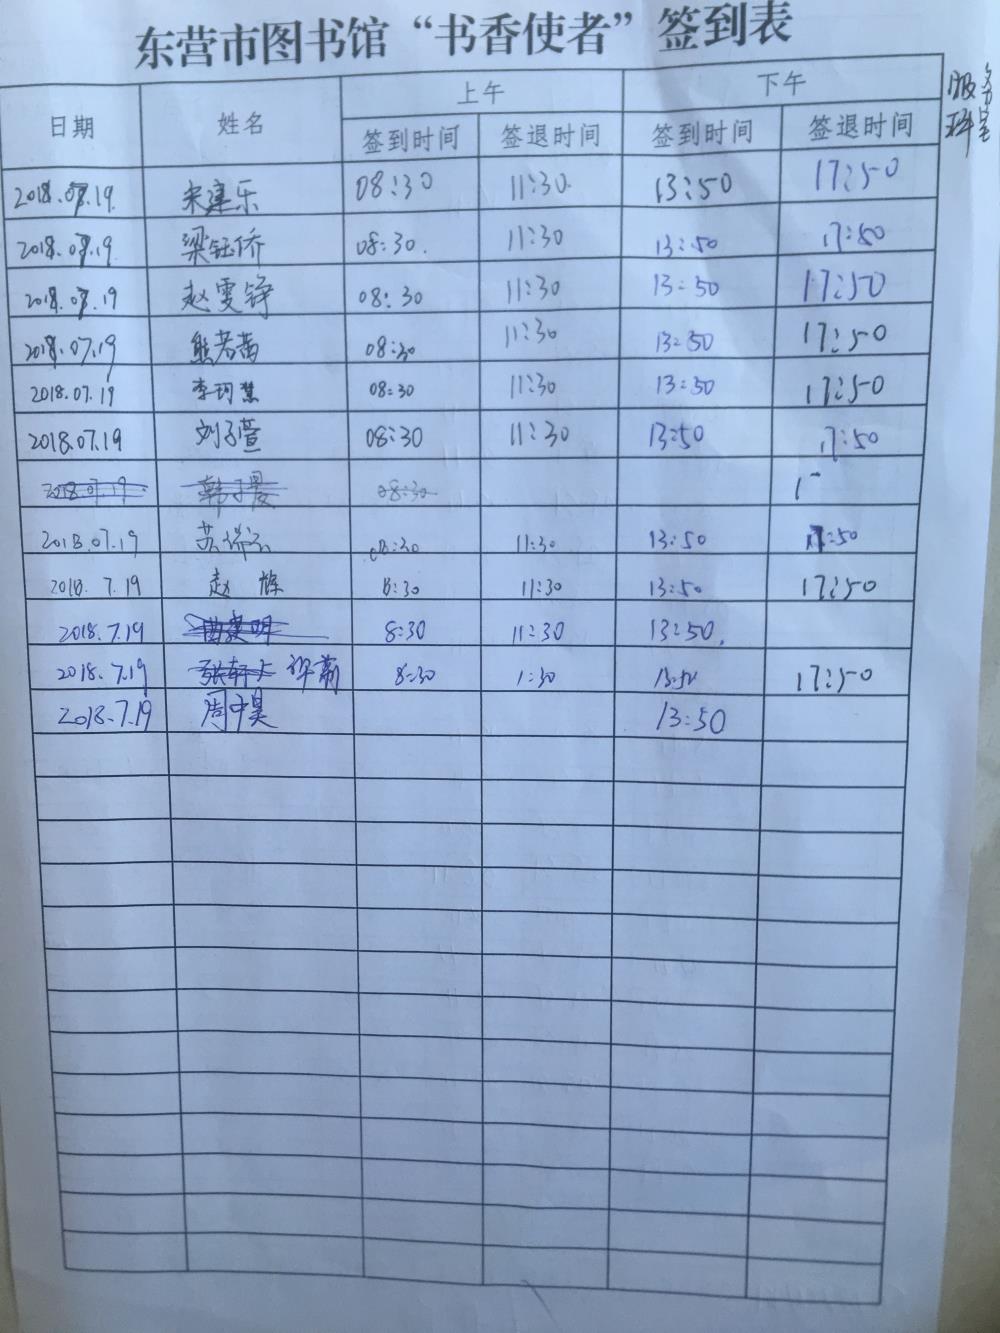 东营市图书馆“书香使者”签到表
日期 姓名 上午 下午
签到时间 签退时间 签到时间 签退时间
2018.07.19 宋建乐 08:30 11:30 13:50 17:50
2018.07.19 梁钰侨 08:30 11:30 13:50 17:50
2018.07.19 赵雯铮 08:30 11:30 13:50 17:50
2018.07.19 熊若茜 08:30 11:30 13:50 17:50
2018.07.19 李珂慧 08:30 11:30 13:50 17:50
2018.07.19 刘子萱 08:30 11:30 13:50 17:50
2018.07.19 08:30
2018.07.19 08:30 11:30 13:50 17:50
2018.7.19 赵 8:30 11:30 13:50 17:50
2018.7.19 8:30 11:30 13:50
2018.7.19 8:30 1:30 13:50 17:50
2018.7.19 周中昊 13:50